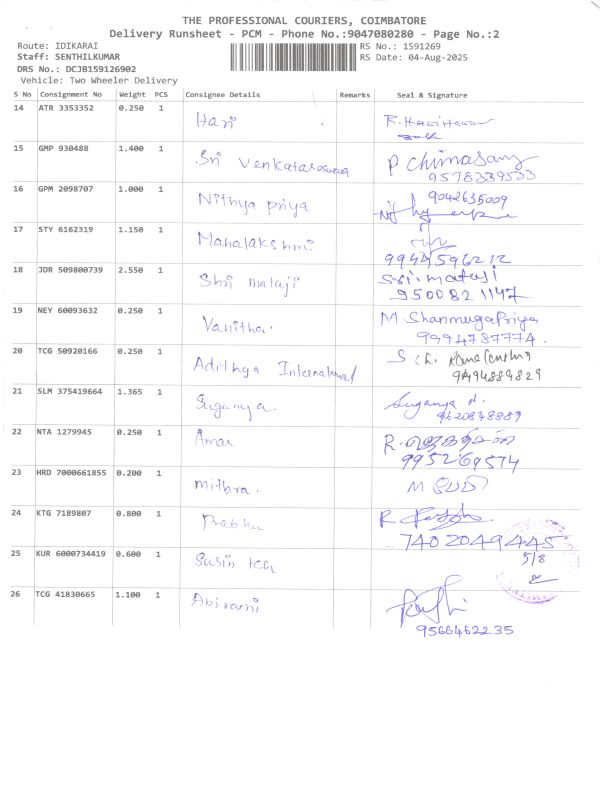 THE PROFESSIONAL COURIERS, COIMBATORE
Delivery Runsheet - PCM - Phone No.:9047080280 - Page No.:2
Route: IDIKARAI RS No.: 1591269
Staff: SENTHILKUMAR RS Date: 04-Aug-2025
DRS No.: DCJB159126902
Vehicle: Two Wheeler Delivery
S No Consignment No Weight PCS Consignee Details Remarks Seal & Signature
14 ATR 3353352 0.250 1 Hari
15 GMP 930488 1.400 1 Sri P Chinnasamy
9578339533
16 GPM 2098707 1.000 1 Nithya priya 9042635009
17 STY 6162319 1.150 1 Mahalakshmi
9944596212
18 JDR 509800739 2.550 1 Shri mataji Sri.mataji
9500821147
19 NEY 60093632 0.250 1 Vanitha. M ShanmugaPriya
9994787774.
20 TCG 50920166 0.250 1 Adithya International S
9494889829
21 SLM 375419664 1.365 1 Suganya. Suganya
9620848889
22 NTA 1279945 0.250 1 Amar R.
9952769574
23 HRD 7000661855 0.200 1 mithra. M தேவி
24 KTG 7189807 0.800 1 Prabhu R
7402049445
25 KUR 6000734419 0.600 1 Sasin tex 5/8
26 TCG 41830665 1.100 1 Abirami
9566462235